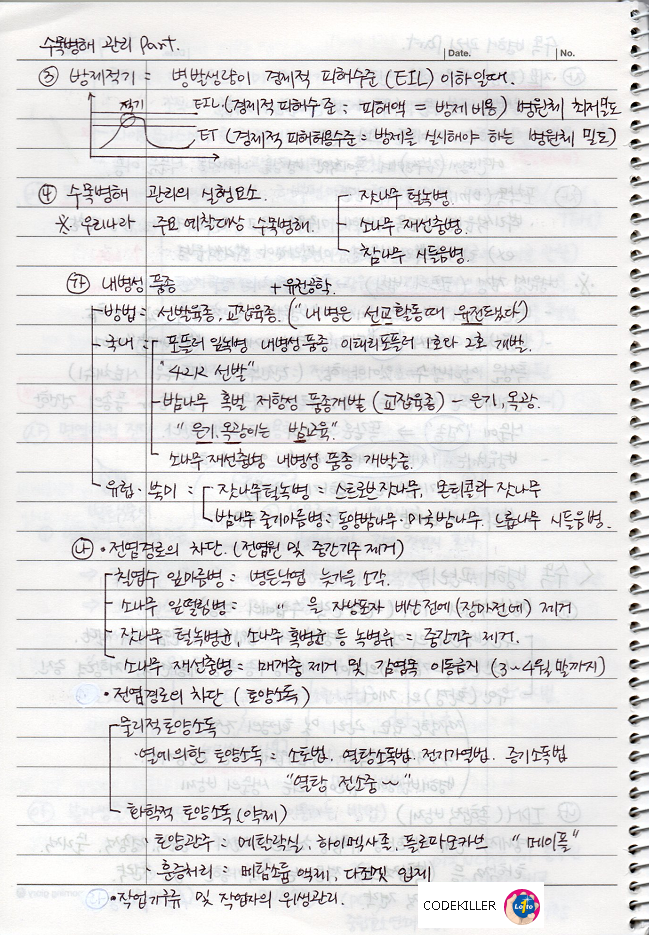 수목병해 관리 Part.
Date. No.
③ 방제적기 = 병발생량이 경제적 피해수준 (EIL) 이하일때.
적기 EIL. (경제적 피해수준 : 피해액 = 방제 비용) 병원체 최저밀도
ET (경제적 피해허용수준 = 방제를 실시해야 하는 병원체 밀도)
④ 수목병해 관리의 실행요소. 잣나무 털녹병.
※ 우리나라 주요 예찰대상 수목병해. 소나무 재선충병.
참나무 시들음병.
㉮ 내병성 품종 + 유전공학
방법 = 선발육종, 교잡육종. ("내병은 선교활동때 유전드렸다")
국내 = 포플러 잎녹병 내병성 품종 이태리포플러 1호와 2호 개발.
"421K 선발"
밤나무 혹벌 저항성 품종개발 (교잡육종) - 은기, 옥광.
"은기, 옥광이는 밤교육"
소나무 재선충병 내병성 품종 개발중.
유럽·북미 = 잣나무털녹병 = 스트로브 잣나무, 몬티콜라 잣나무
밤나무 줄기마름병 = 동양밤나무·미국밤나무, 느릅나무 시들음병.
㉯ · 전염경로의 차단. (전염원 및 중간기주 제거)
침엽수 잎마름병 = 병든낙엽 늦가을 소각.
소나무 잎떨림병 = 〃 을 자낭포자 비산전에 (장마전에) 제거
잣나무 털녹병균, 소나무 혹병균 등 녹병류 = 중간기주 제거.
소나무 재선충병 = 매개충 제거 및 감염목 이동금지 (3~4월 말까지)
· 전염경로의 차단 (토양소독)
물리적 토양소독
· 열에 의한 토양소독 = 소토법. 열탕소독법. 전기가열법. 증기소독법
"열탕 전소중~"
화학적 토양소독 (약제)
· 토양관주 = 에트리디아졸, 하이멕사졸, 플로파모카브 "메이플"
· 훈증처리 = 메탐소듐 액제, 다조멧 입제
· 작업기구류 및 작업자의 위생관리.
CODEKILLER
Lotto